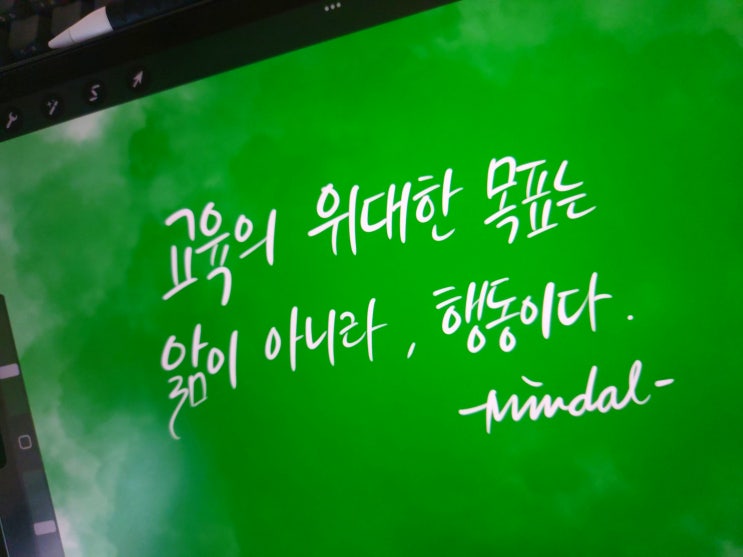 교육의 위대한 목표는
앎이 아니라, 행동이다.
-Mindal-